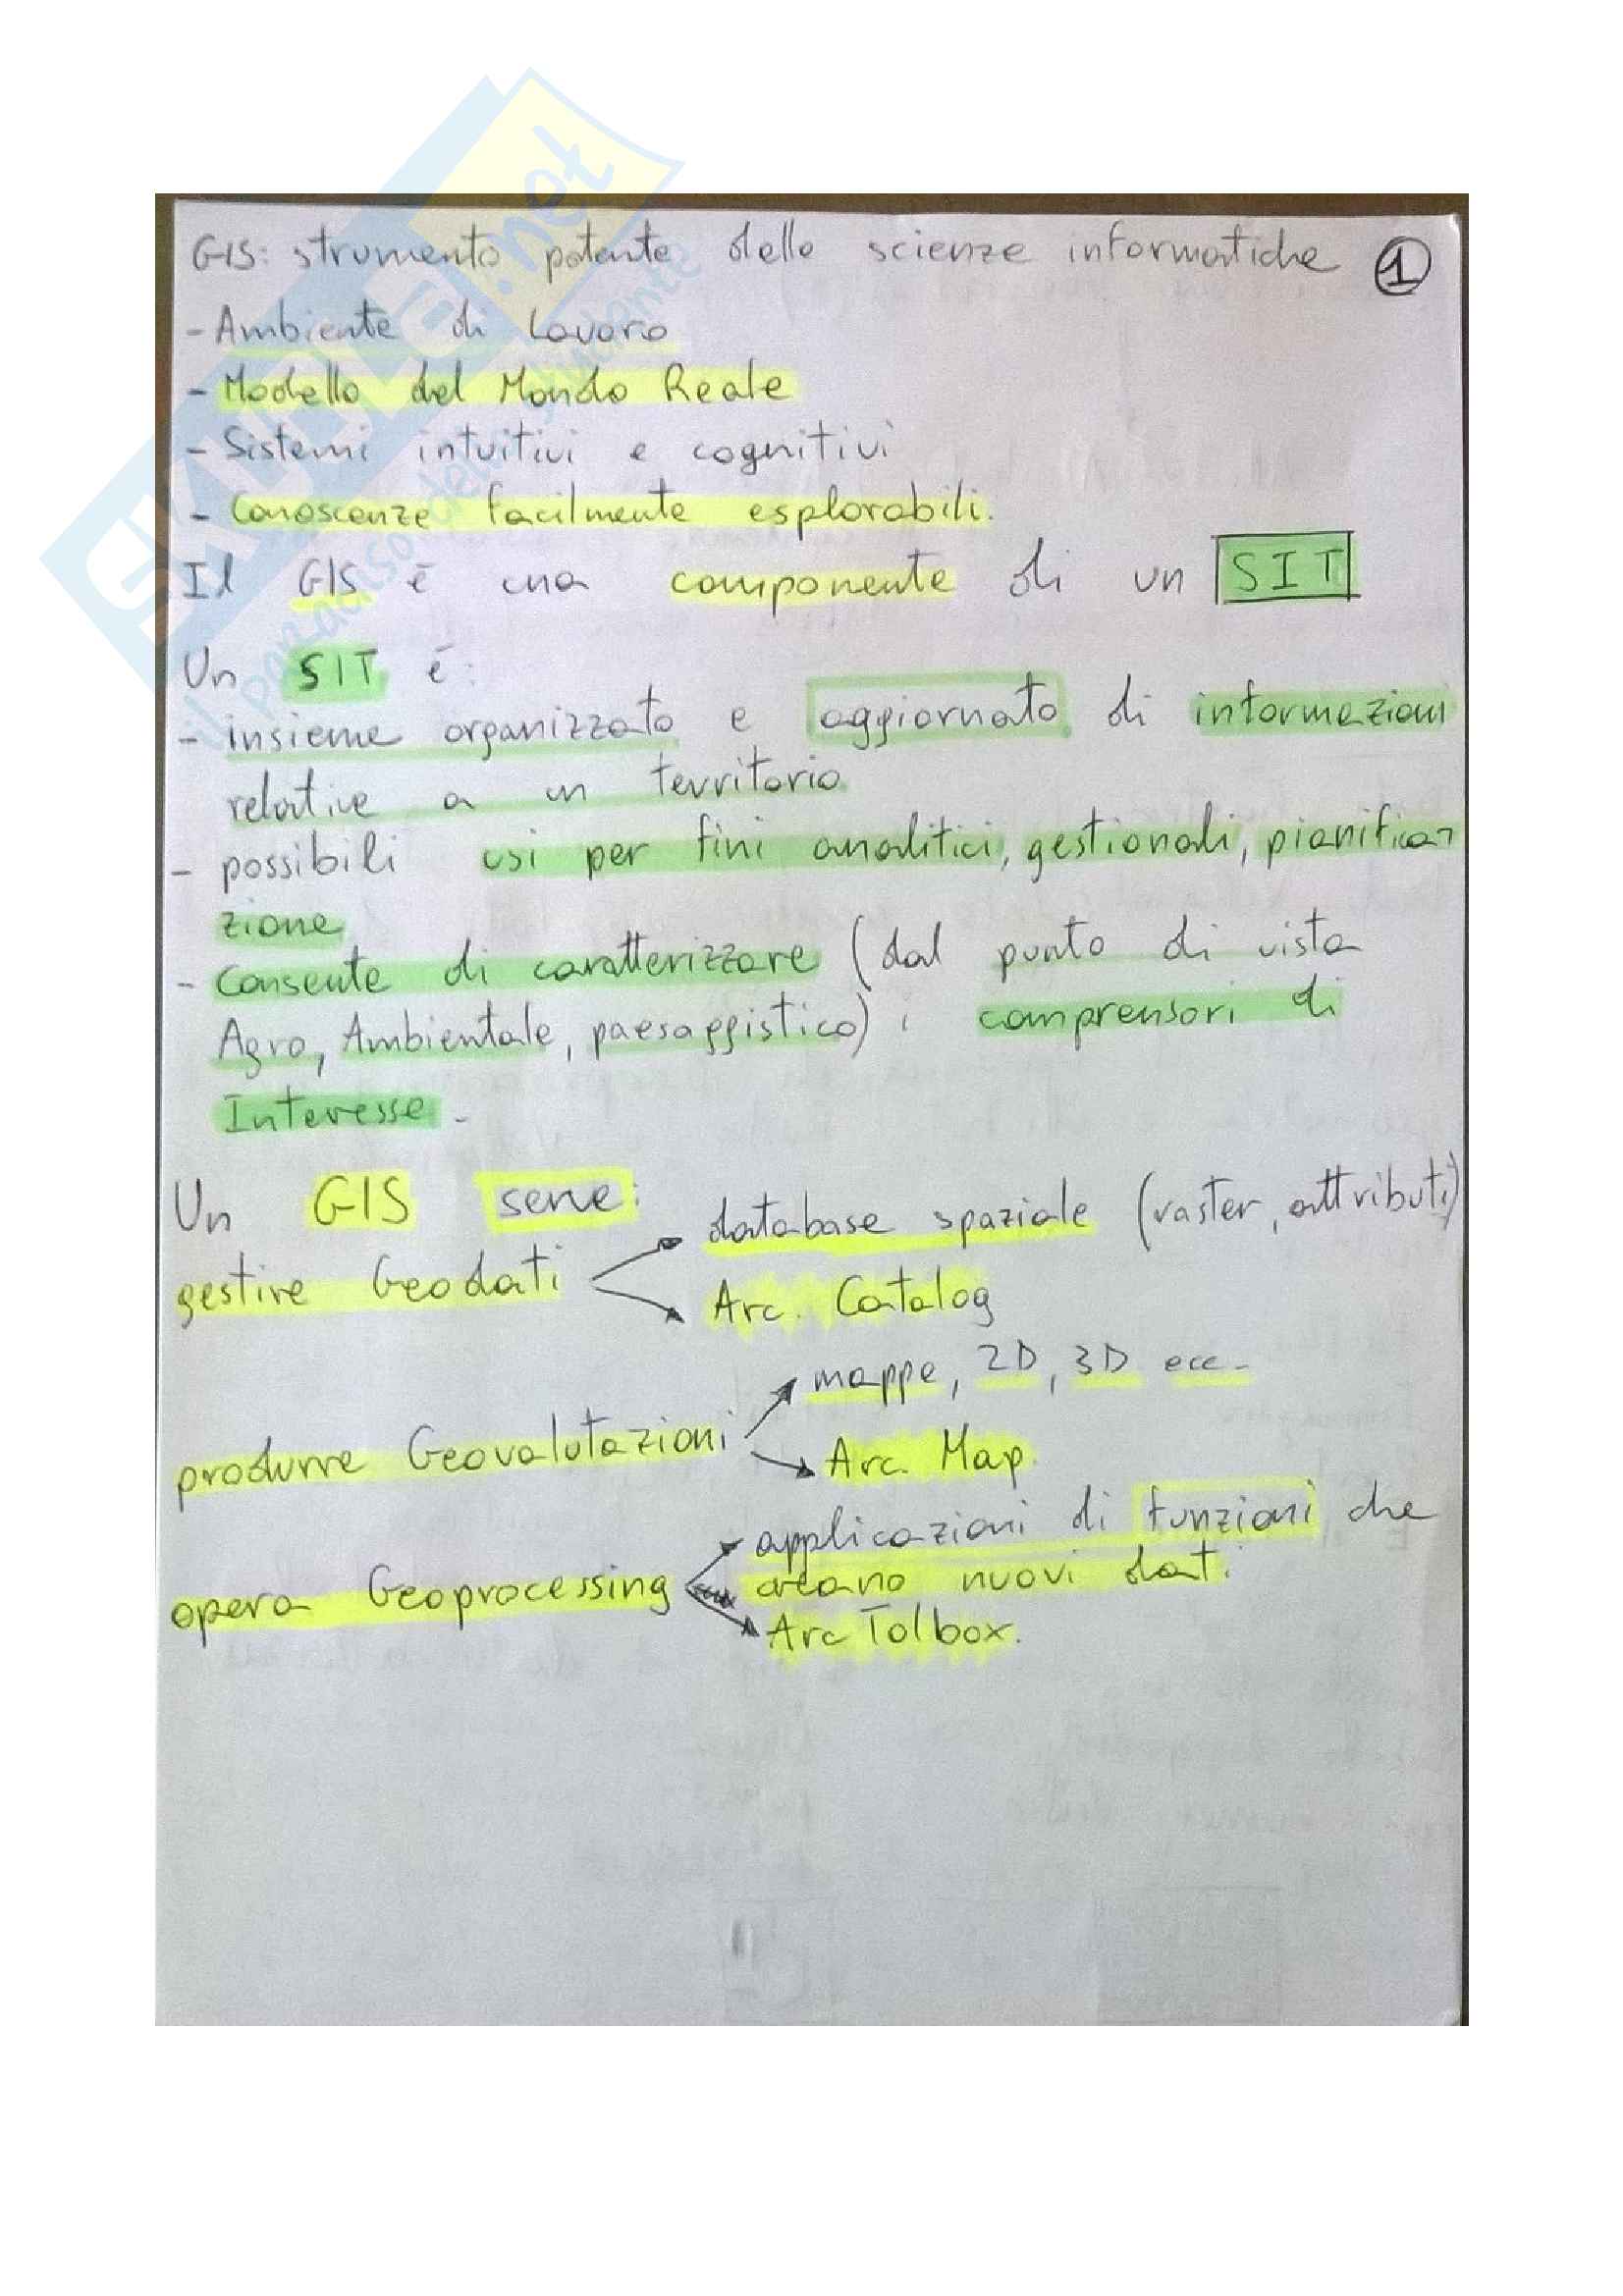 GIS: strumento potente delle scienze informatiche 1
- Ambiente di Lavoro
- Modello del Mondo Reale
- Sistemi intuitivi e cognitivi
- Conoscenze facilmente esplorabili.
Il GIS è una componente di un SIT
Un SIT è:
- insieme organizzato e aggiornato di informazioni
relative a un territorio
- possibili usi per fini analitici, gestionali, pianifica-
zione
- Consente di caratterizzare (dal punto di vista
Agro, Ambientale, paesaggistico) i comprensori di
Interesse -
Un GIS serve:
database spaziale (raster, attributi)
gestire Geodati
Arc. Catalog
mappe, 2D, 3D ecc-
produrre Geovalutazioni
Arc. Map
applicazioni di funzioni che
opera Geoprocessing creano nuovi dati.
Arc Tolbox.
EXAMra.net
il paradiso dello studente